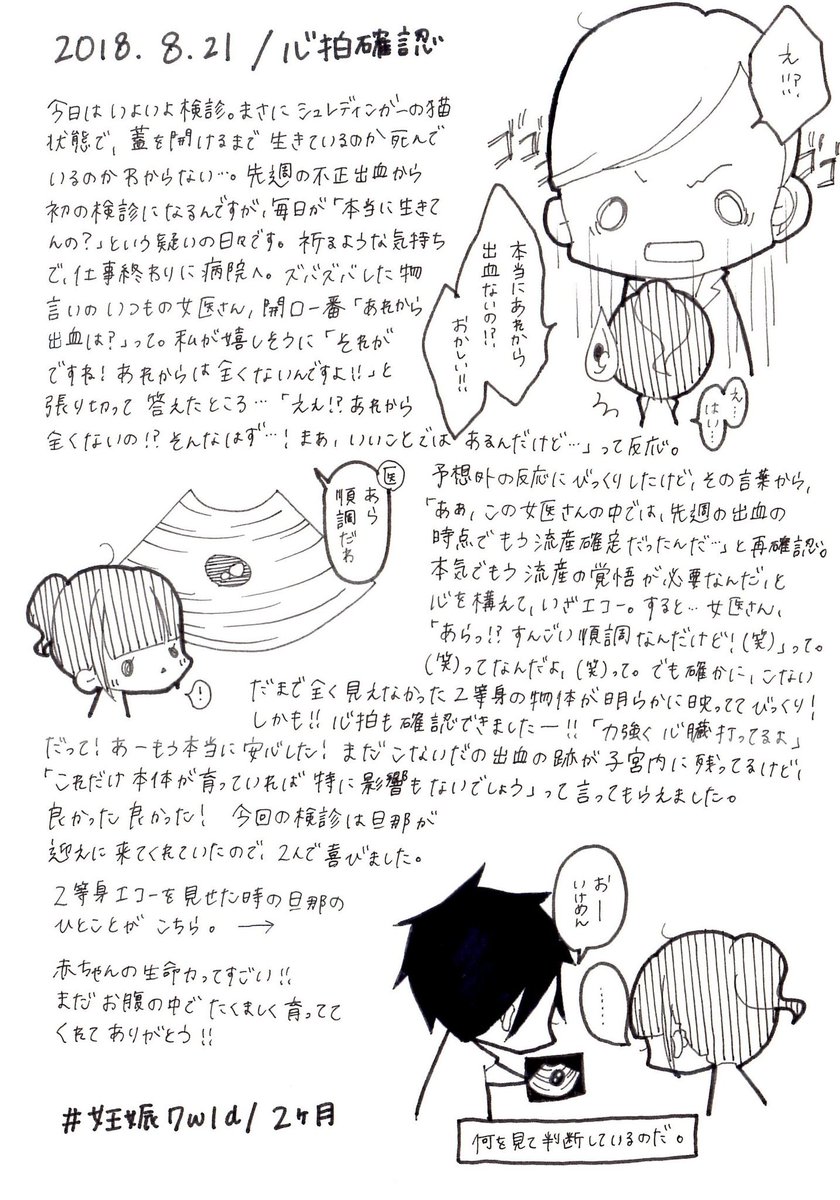 2018. 8. 21 / 心拍確認
今日はいよいよ検診。まさにシュレディンガーの猫
状態で、蓋を開けるまで生きているのか死んで
いるのかわからない…。先週の不正出血から
初の検診になるんですが、毎日が「本当に生きて
んの?」という疑いの日々です。祈るような気持ち
で、仕事終わりに病院へ。ズバズバした物
言いのいつもの女医さん、開口一番「あれから
出血は?」って。私が嬉しそうに「それが
ですね!あれからは全くないんですよ!!」と
張り切って答えたところ…「ええ!?あれから
全くないの!?そんなはず…!まぁ、いいことではあるんだけど…」って反応。
え!!?
ゴゴゴ
ゴゴゴ
本当にあれから
出血ないの!?
おかしい!!
え…
はい…
予想外の反応にびっくりしたけど、その言葉から、
「あぁ、この女医さんの中では、先週の出血の
時点でもう流産確定だったんだ…」と再確認。
本気でもう流産の覚悟が必要なんだ、と
心を構えて、いざエコー。すると…女医さん、
「あらっ!?すんごい順調なんだけど!(笑)」って。
(笑)ってなんだよ、(笑)って。でも確かに、こない
だまで全く見えなかった2等身の物体が明らかに映っててびっくり!
しかも!!心拍も確認できましたー!!「力強く心臓打ってるよ」
だって!あーもう本当に安心した!まだこないだの出血の跡が子宮内に残ってるけど、
「これだけ本体が育っていれば特に影響もないでしょう」って言ってもらえました。
良かった良かった! 今回の検診は旦那が
迎えに来てくれていたので、2人で喜びました。
医
あら
順調だわ
!
2等身エコーを見せた時の旦那の
ひとことがこちら。→
赤ちゃんの生命力ってすごい!!
まだお腹の中でたくましく育ってて
くれてありがとう!!
おー
いけめん
……
何を見て判断しているのだ。
#妊娠7w1d/2ヶ月